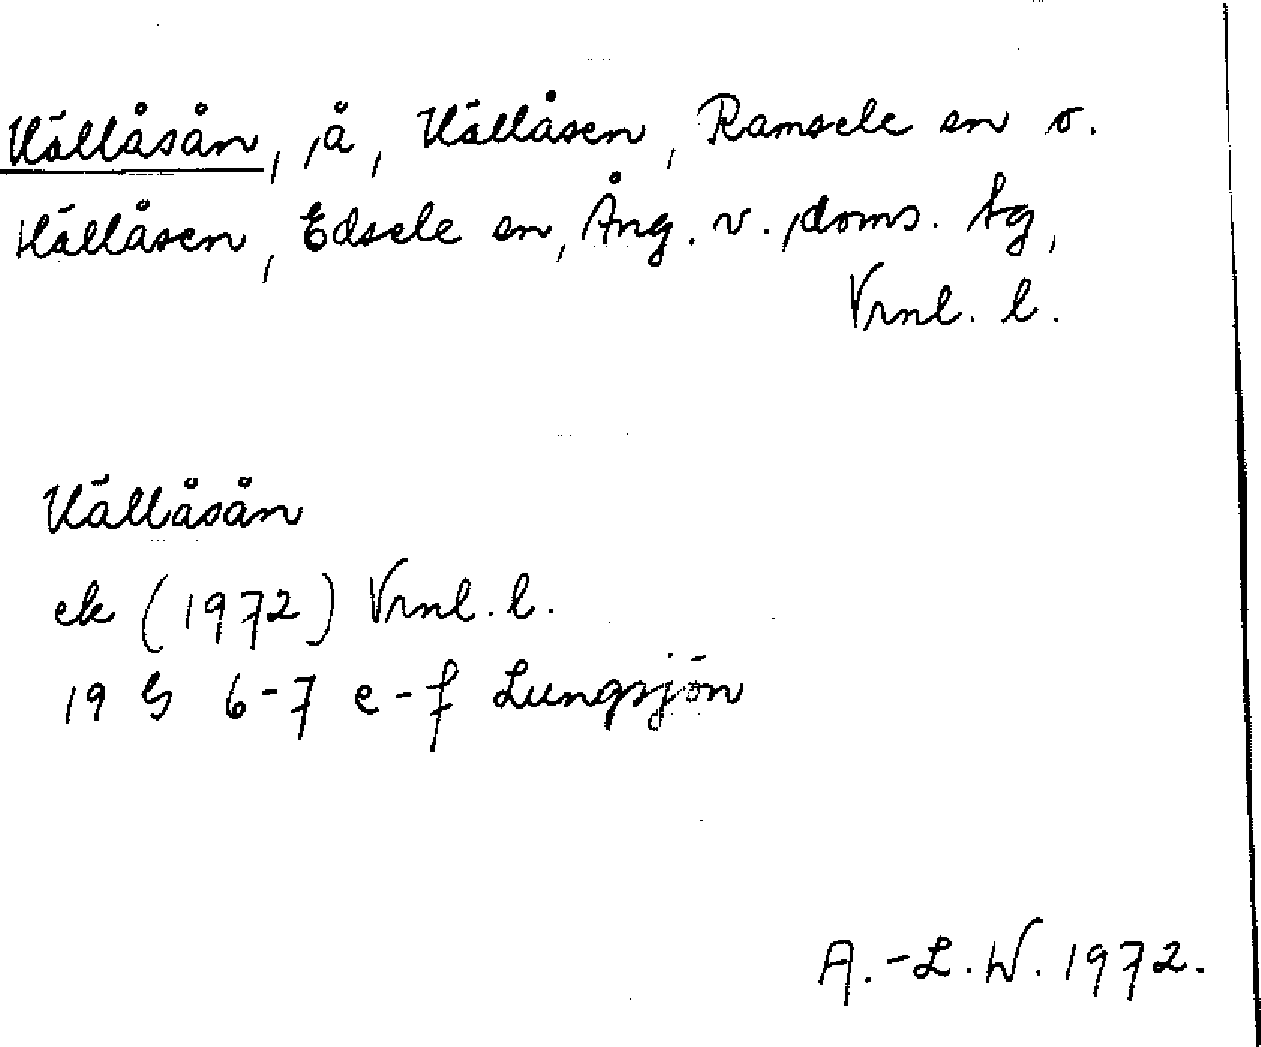 Källåsån, å, Källåsen, Ramsele sn o.
Källåsen, Edsele sn, Ång. v. doms. tg,
Vrnl. l.
Källåsån
ek (1972) Vrnl. l.
19 G 6-7 e-f Lungsjön
A.-L.W. 1972.